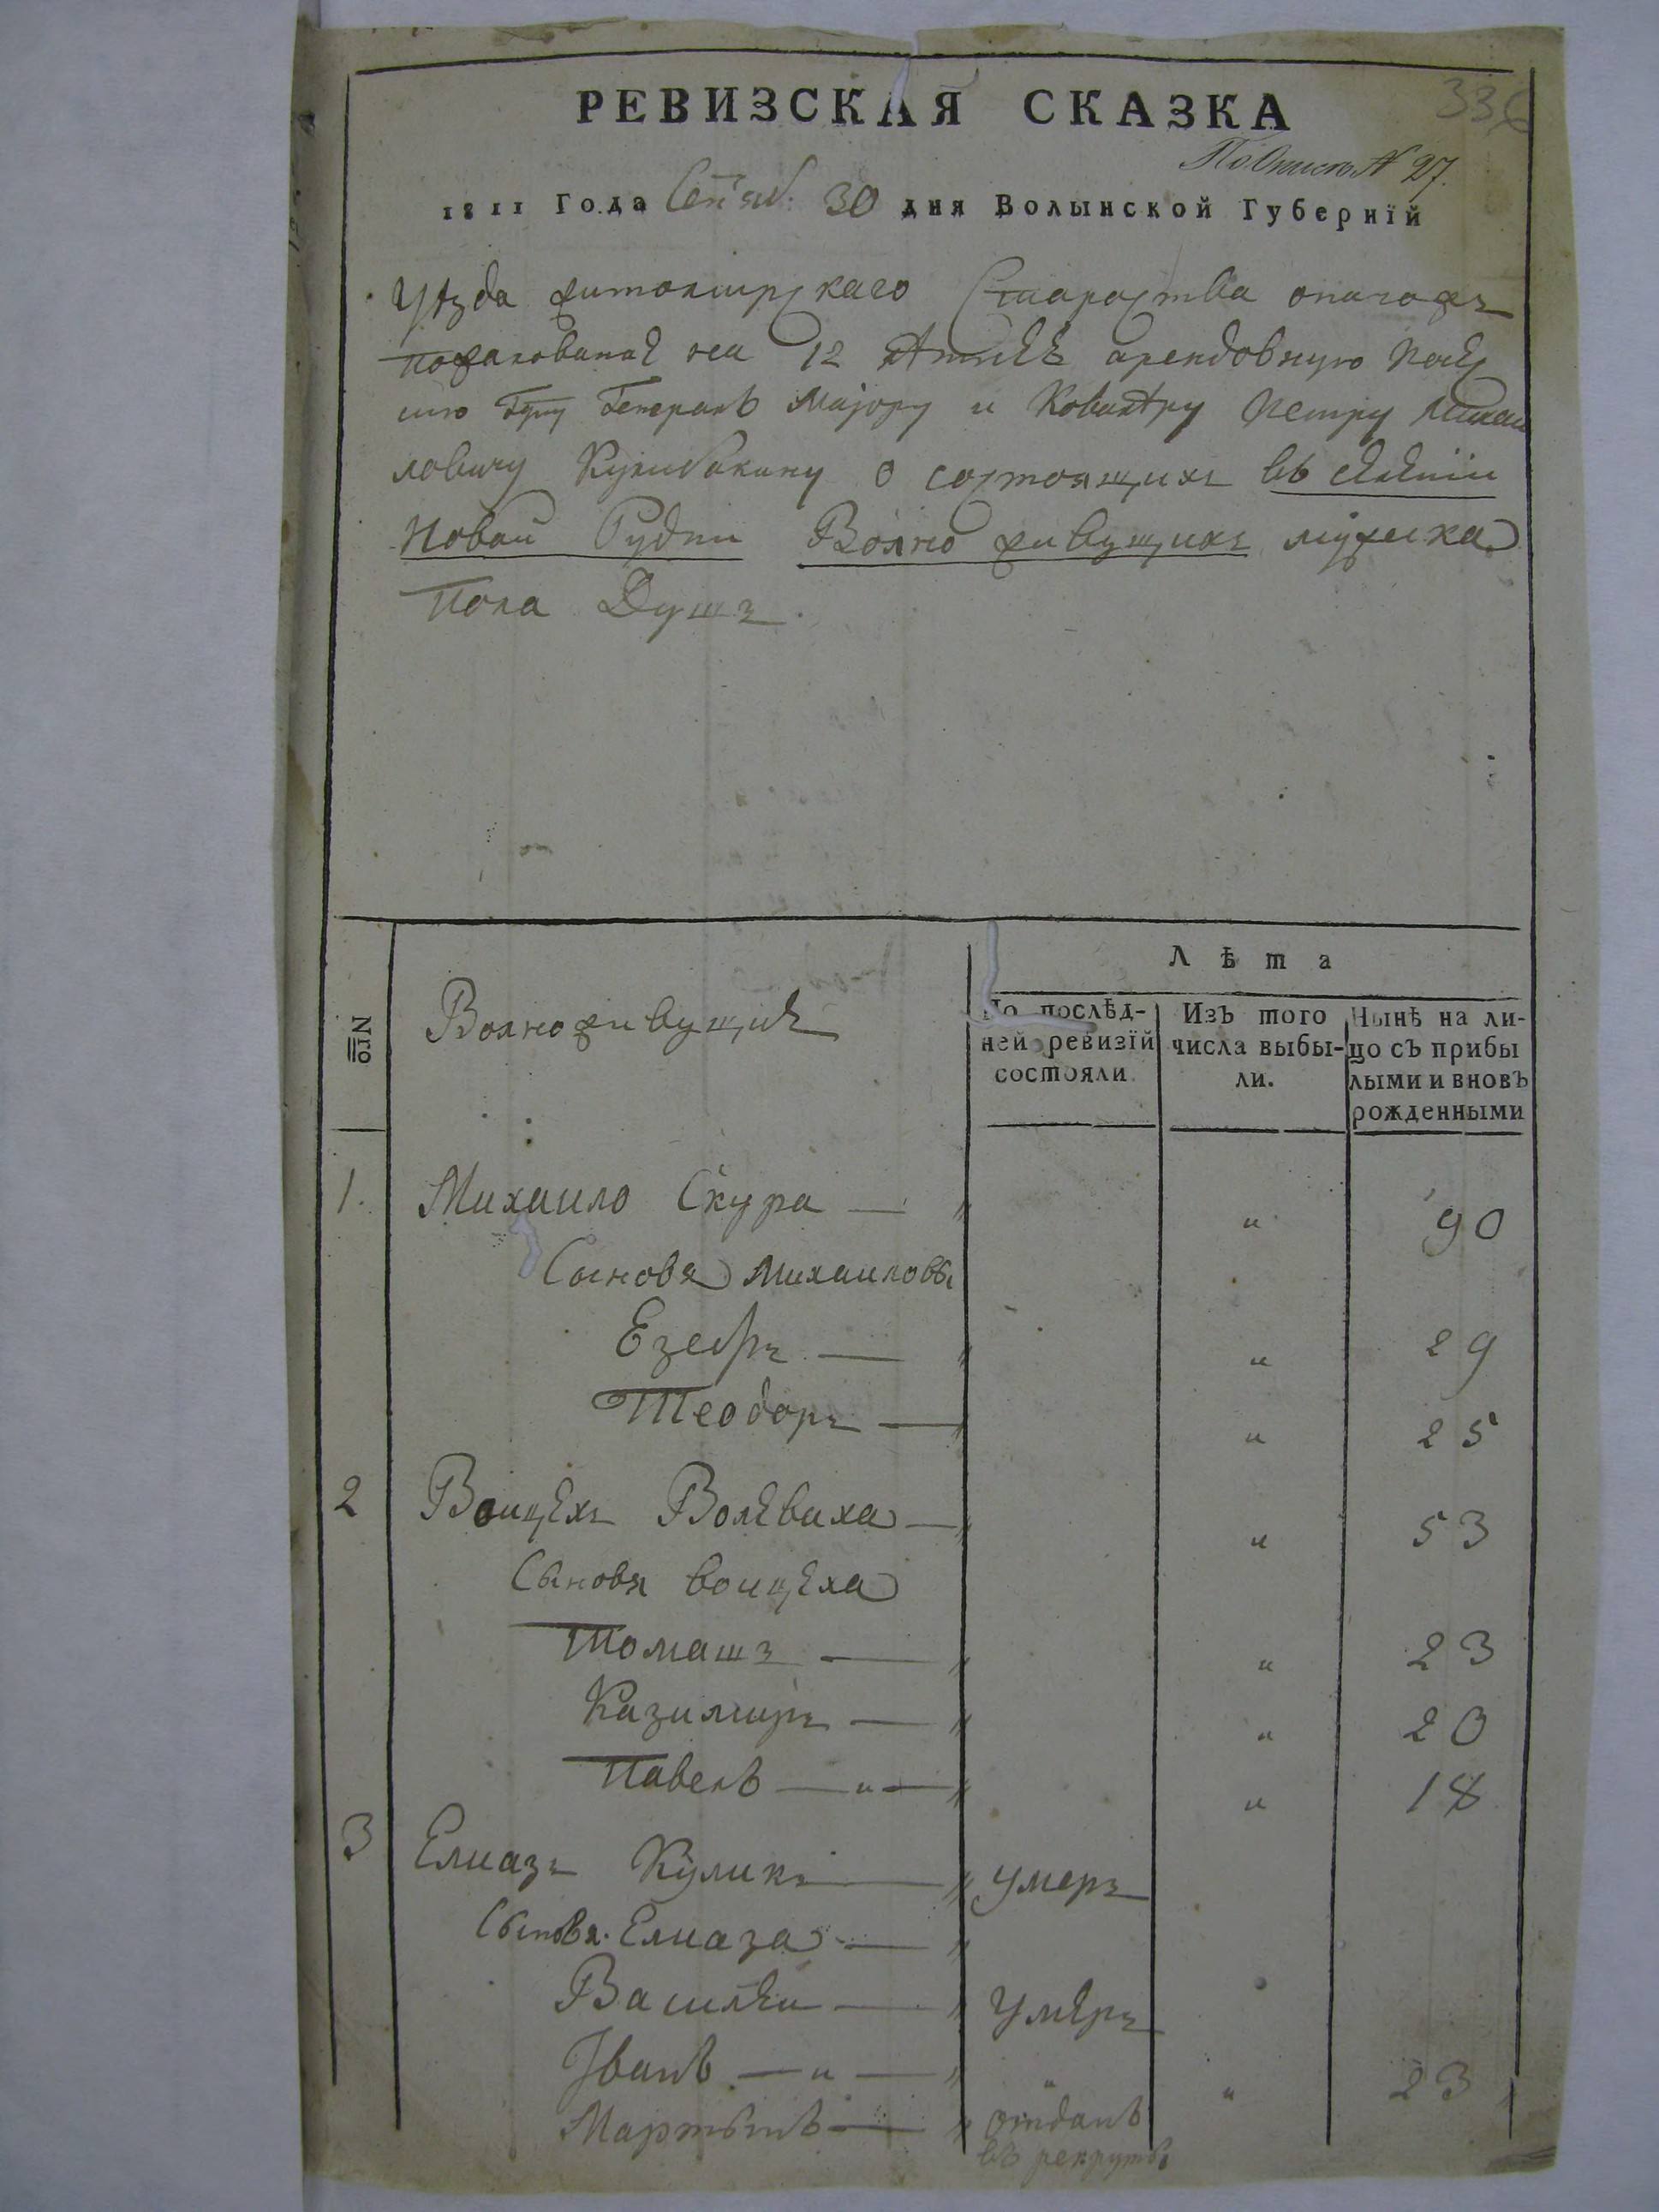 РЕВИЗСКАЯ СКАЗКА
336
По Описю № 27.
1811 Года Сентяб: 30 дня Волынской Губернїй
Уѣзда житомирскаго Староства
пожалованає на 12 арендовную
Генералъ Маіору и Кавалѣру Петру Михаи
ловичу Кулибакину о состоящихъ въ селенїи
Новой Рудни Волно живущихъ мужеска
Пола Душъ.
Nro
Волноживущие
Лѣта
По послѣд-
ней ревизїй
состояли.
Изъ того
числа выбы-
ли.
Нынѣ на ли-
цо съ прибы
лыми и вновъ
рожденными
1. Михаило Скура — „ „ 90
Сыновя Михаиловы
Езефъ — „ „ 29
Теодоръ — „ „ 25
2 Воицехъ Волеваха — „ „ 53
Сыновя воицеха
Томашъ — „ „ 23
Казимиръ — „ „ 20
Павелъ — „ — „ „ 18
3 Елиазъ Куликъ — „ умеръ
Сыновя Елиаза — „
Василеи — „ умеръ
Іванъ — „ — „ „ „ 23
Мартынъ — „ отданъ
въ рекруты